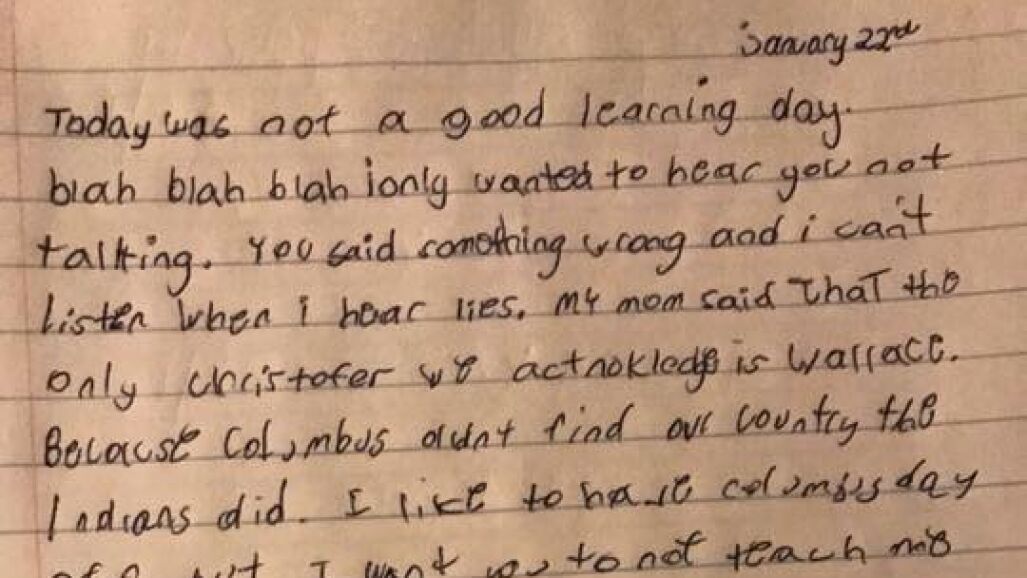 January 22nd
Today was not a good learning day.
blah blah blah i only wanted to hear you not
talking. You said something wrong and i can't
listen when i hear lies. My mom said That the
only christofer we acknokledge is Wallace.
Because Columbus didnt find our country the
Indians did. I like to have columbus day
I want you to not teach me